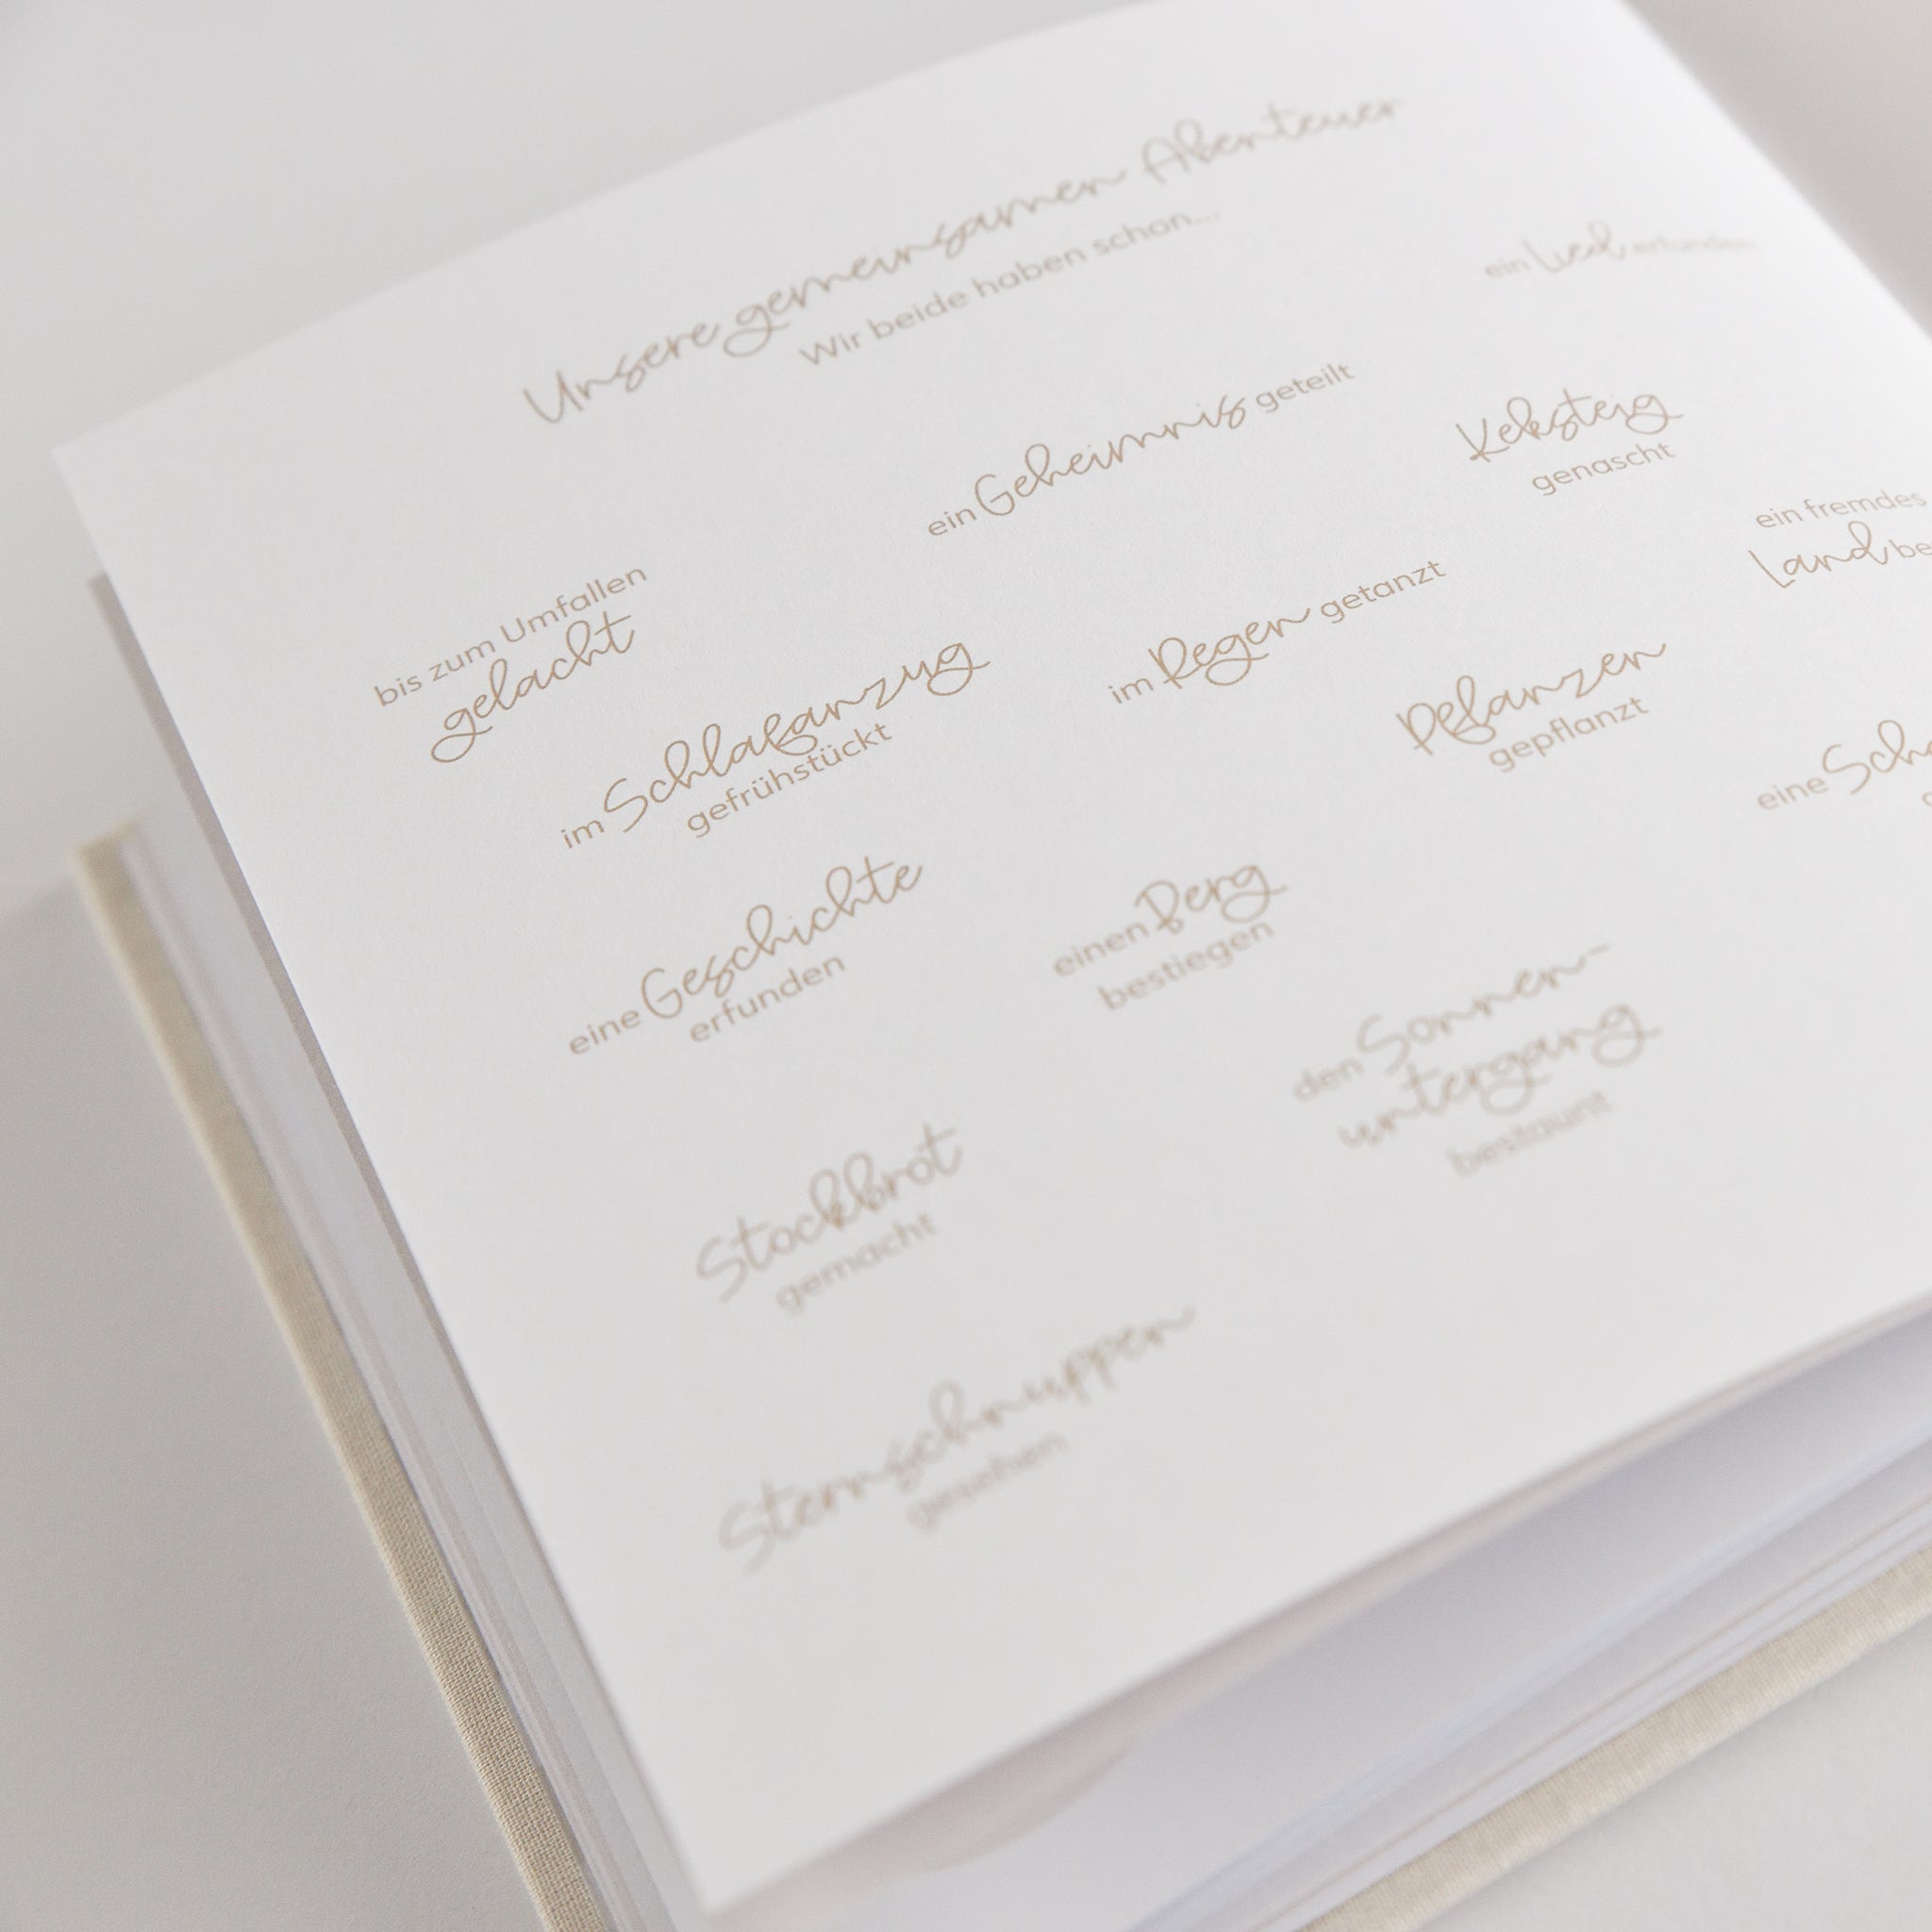 Unsere gemeinsamen Abenteuer
Wir beide haben schon...
ein Lied erfunden
ein Geheimnis geteilt
Keksteig
genascht
bis zum Umfallen
gelacht
im Regen getanzt
ein fremdes
Land be
im Schlafanzug
gefrühstückt
Pflanzen
gepflanzt
eine Sch
eine Geschichte
erfunden
einen Berg
bestiegen
den Sonnen-
untergang
bestaunt
Stockbrot
gemacht
Sternschnuppen
gesehen